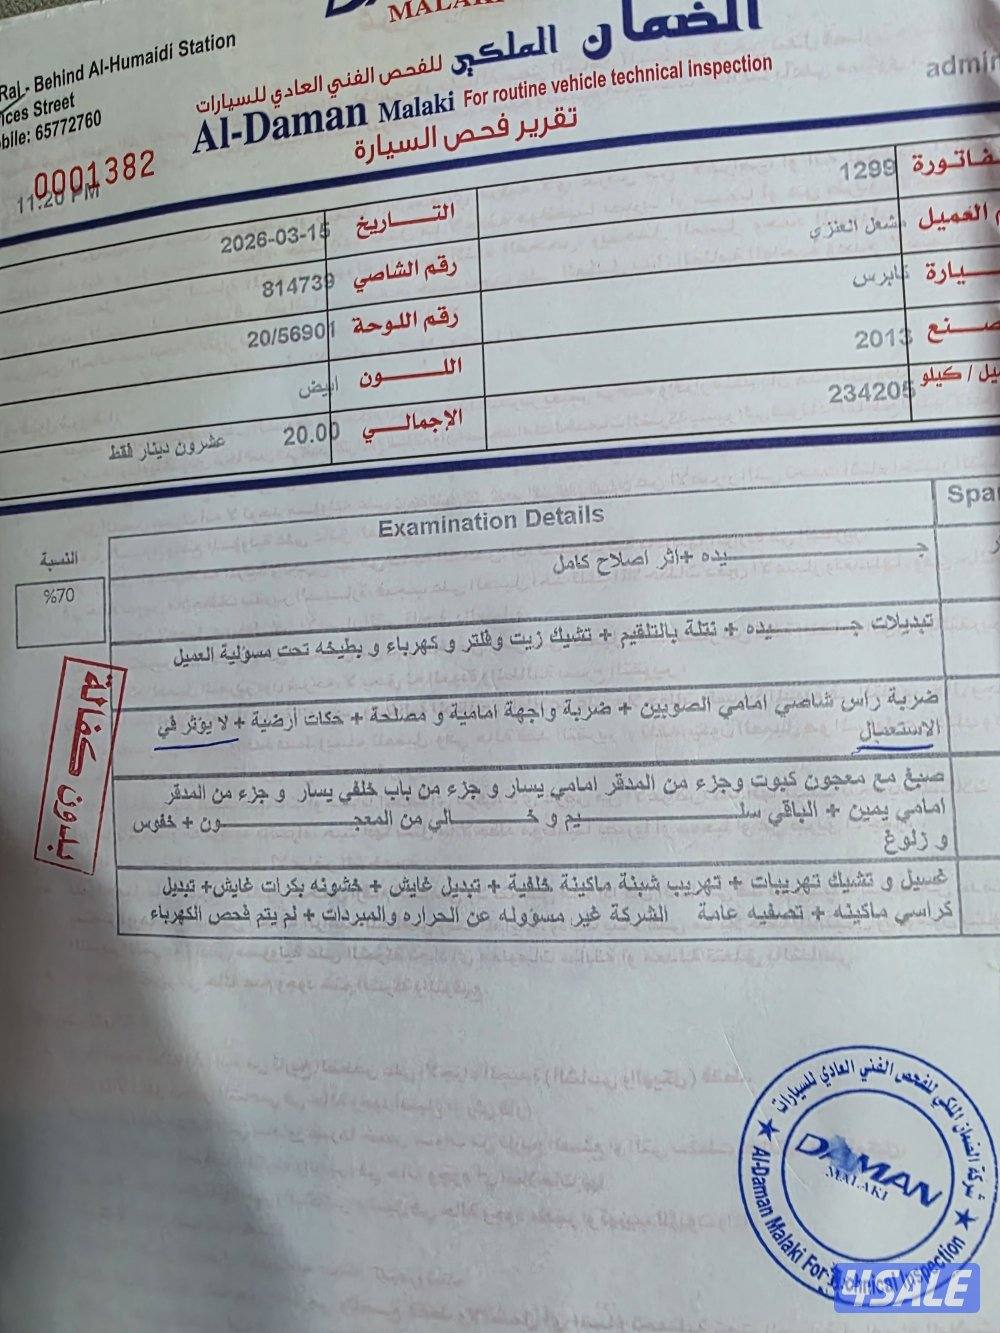 MALAKI
الضمان الملكي للفحص الفني العادي للسيارات
Behind Al-Humaidi Station
Street
65772760
Al-Daman Malaki For routine vehicle technical inspection
admin
تقرير فحص السيارة
0001382
11:20 PM
1299
التـــاريخ 2026-03-15
العميل مشعل العنزي
رقم الشاصي 814739
رقم اللوحة 20/56901
2013
اللـــــون ابيض
ميل / كيلو 234205
الإجمالـــي 20.00 عشرون دينار فقط
Examination Details
النسبة
جـــــيده +اثر اصلاح كامل
%70
تبديلات جـــــيده + نتلة بالتلقيم + تشيك زيت وفلتر و كهرباء و بطيخه تحت مسولية العميل
ضربة راس شاصي امامي الصوبين + ضربة واجهة امامية و مصلحة + حكات أرضية + لا يوثر في
الاستعمال
بدون كفالة
صبغ مع معجون كبوت وجزء من المدقر امامي يسار و جزء من باب خلفي يسار و جزء من المدقر
امامي يمين + الباقي سلـــــيم و خـــالي من المعجـــــون + خفوس
و زلوغ
غسيل و تشيك تهريبات + تهريب شبنة ماكينة خلفية + تبديل غايش + خشونه بكرات غايش+ تبديل
كراسي ماكينه + تصفيه عامة الشركة غير مسؤوله عن الحراره والمبردات + لم يتم فحص الكهرباء
شركة الضمان الملكي للفحص الفني العادي للسيارات
DAMAN
MALAKI
Al-Daman Malaki For Technical Inspection
4SALE